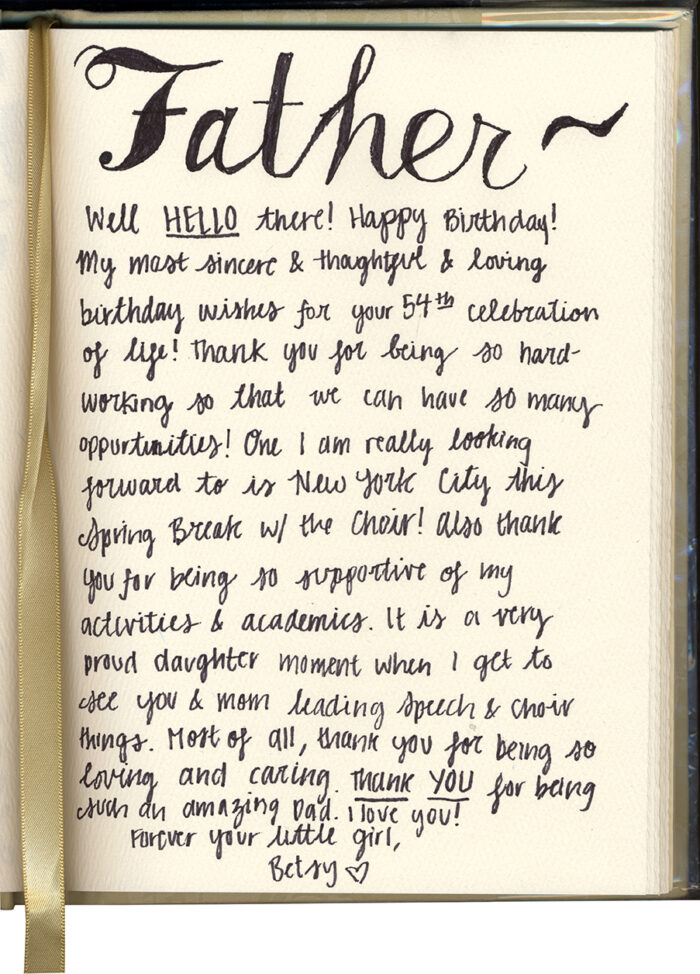 Father ~
Well HELLO there! Happy Birthday!
My most sincere & thoughtful & loving
birthday wishes for your 54th celebration
of life! Thank you for being so hard-
working so that we can have so many
oppurtunities! One I am really looking
forward to is New York City this
Spring Break w/ the Choir! Also thank
you for being so supportive of my
activities & academics. It is a very
proud daughter moment when I get to
see you & mom leading speech & choir
things. Most of all, thank you for being so
loving and caring. Thank YOU for being
such an amazing Dad. I love you!
Forever your little girl,
Betsy ♡